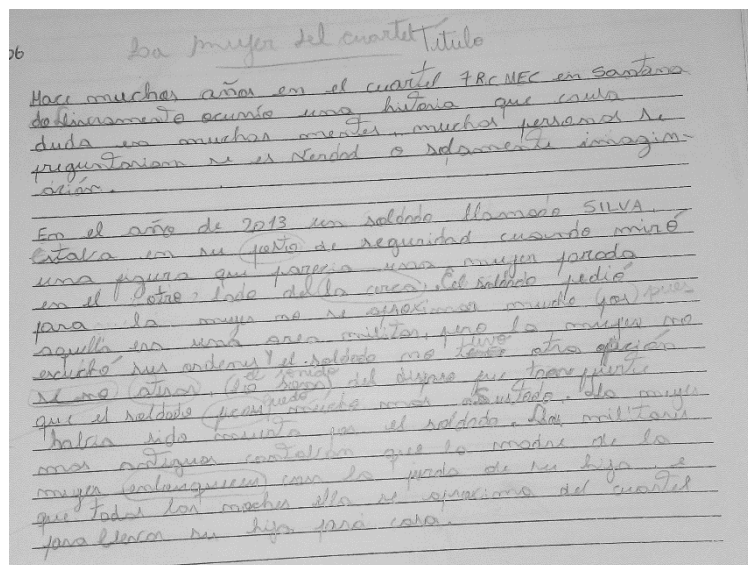 06 La mujer del cuartel Titulo
Hace muchos años en el cuartel 7RCMEC en Santana
do Livramento ocurrio una historia que causa
duda en muchas mentes, muchas personas se
preguntariam se es verdad o solamente imagin-
ación.
En el año de 2013 un soldado llamado SILVA
estaba en su posto de seguridad cuando miró
una figura que parecia una mujer parada
en el otro lado de la cerca, el soldado pedió
para la mujer no se aproximar mucho pues
aquella era una area militar, pero la mujer no
escuchó sus ordenes y el soldado no tuvo otra opción
se no atirar, el sonido del disparo fue
que el soldado quedó mucho mas asustado. La mujer
habia sido muerta por el soldado. Los militaris
mas antiguos contaban que la madre de la
mujer enlouqueceu com la perda de su hija e
que todas las noches ella se aproxima del cuartel
para llevar su hija para casa.